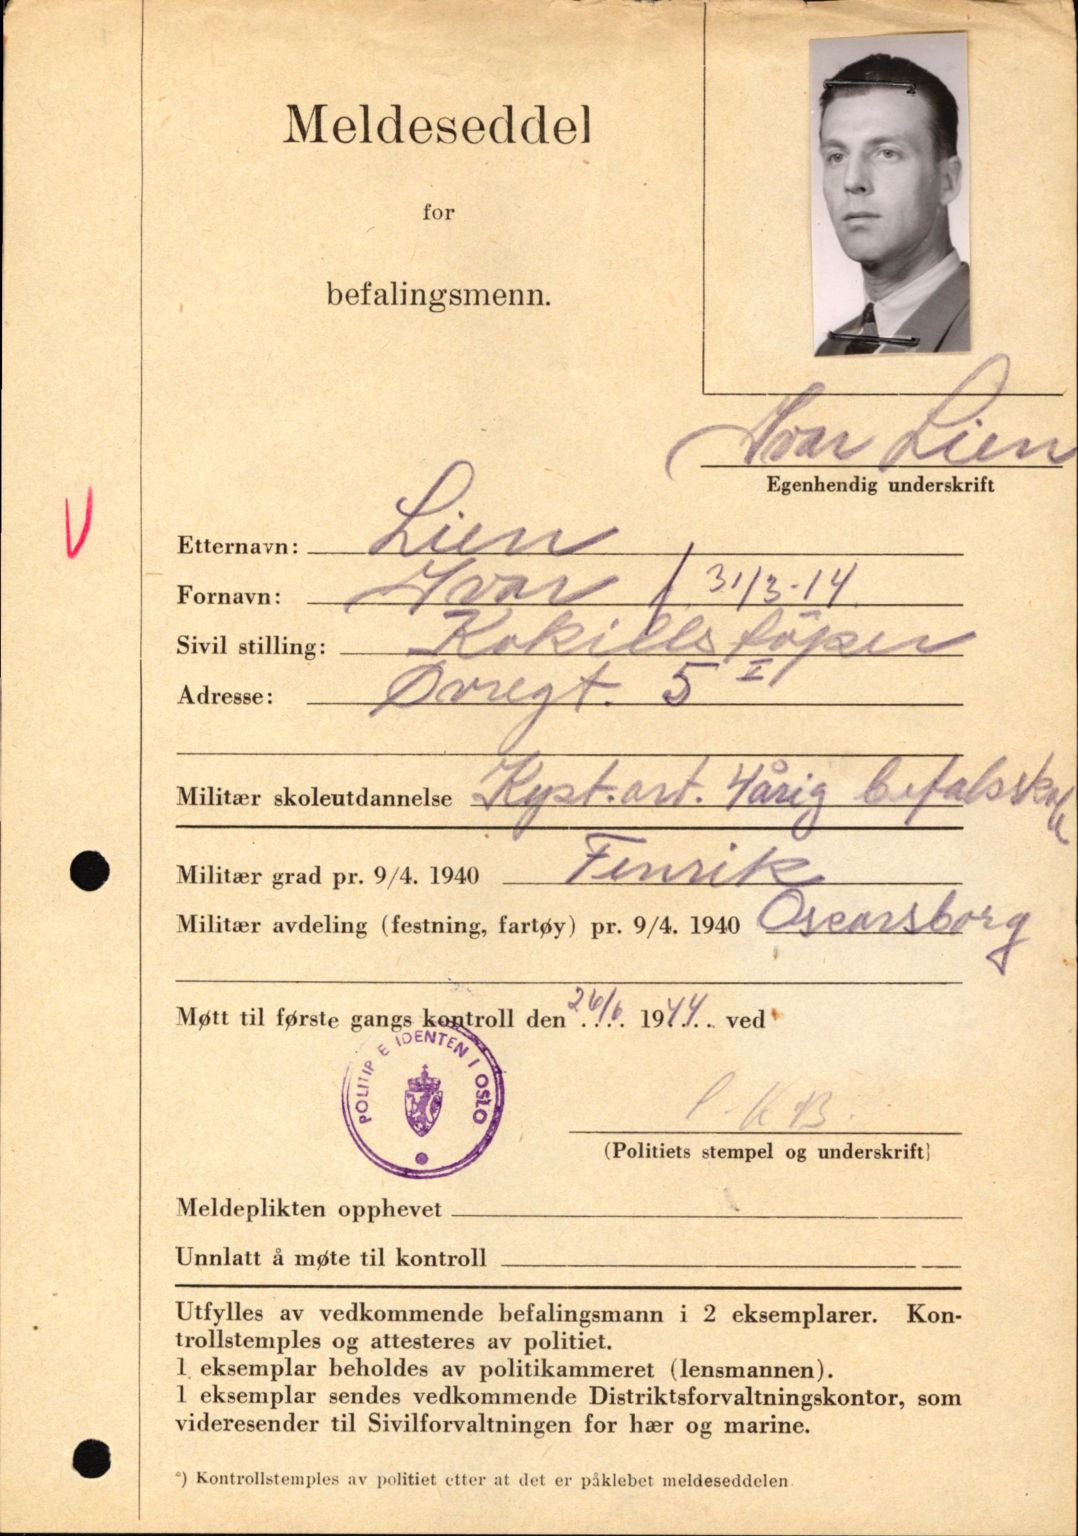 Meldeseddel
for
befalingsmenn.
Ivar Lien
Egenhendig underskrift
Etternavn: Lien
Fornavn: Ivar / 31/3-14
Sivil stilling: Kokillstöper
Adresse: Øvregt. 5 I
Militær skoleutdannelse Kyst.art. 4årig befalsskole
Militær grad pr. 9/4. 1940 Fenrik
Militær avdeling (festning, fartøy) pr. 9/4. 1940 Oscarsborg
Møtt til første gangs kontroll den 26/6 1944 ved
POLITIP E IDENTEN I OSLO
(Politiets stempel og underskrift)
Meldeplikten opphevet
Unnlatt å møte til kontroll
Utfylles av vedkommende befalingsmann i 2 eksemplarer. Kon-
trollstemples og attesteres av politiet.
1 eksemplar beholdes av politikammeret (lensmannen).
1 eksemplar sendes vedkommende Distriktsforvaltningskontor, som
videresender til Sivilforvaltningen for hær og marine.
*) Kontrollstemples av politiet etter at det er påklebet meldeseddelen.